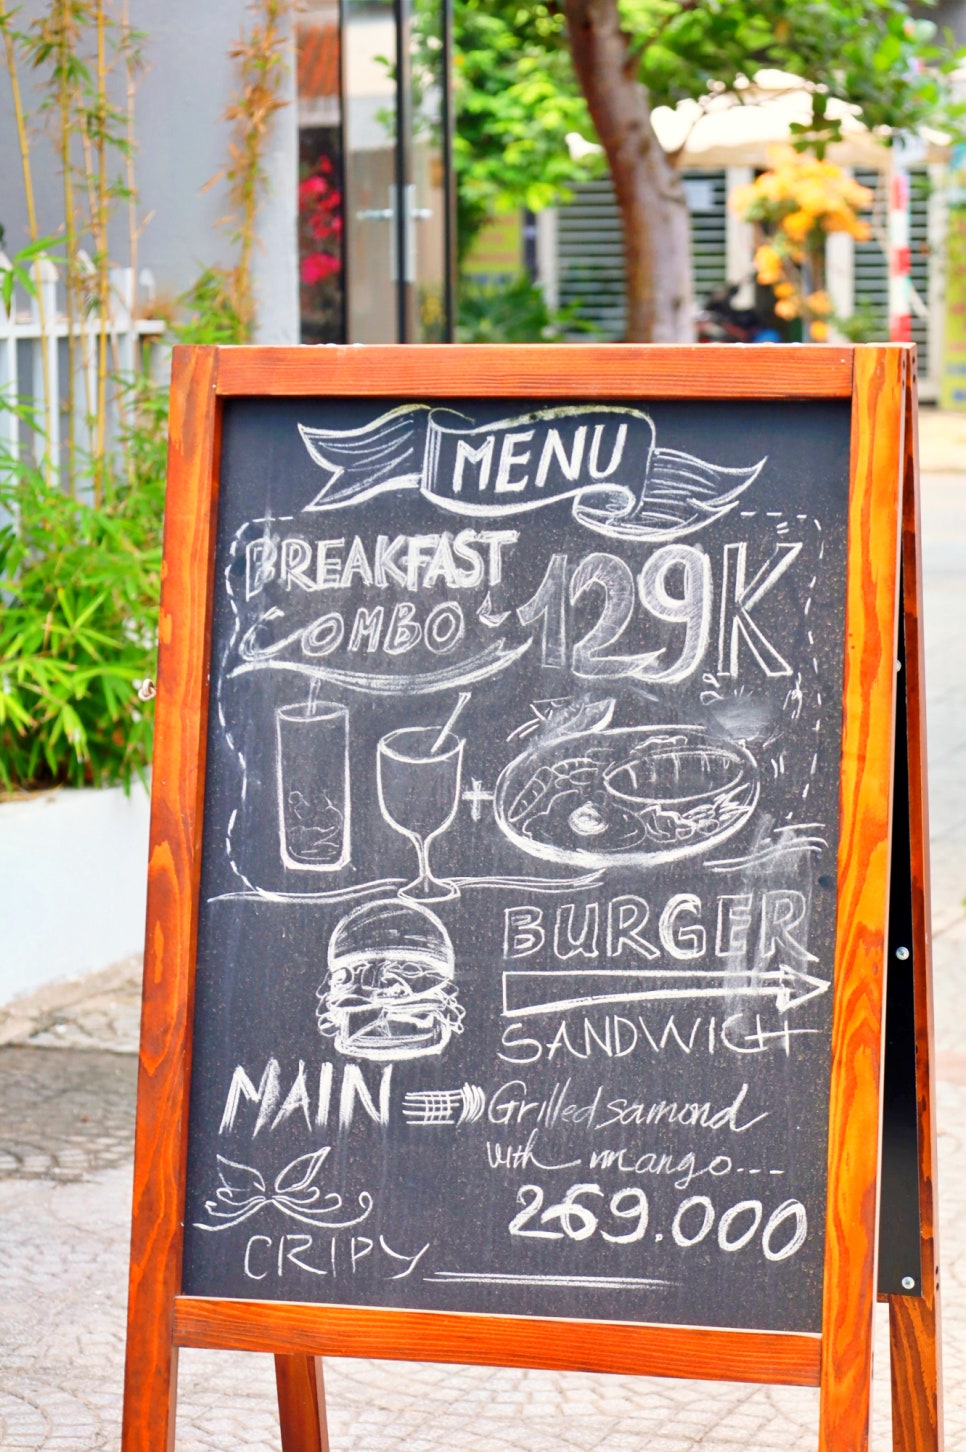 MENU
BREAKFAST
COMBO
129K
BURGER
SANDWICH
MAIN
Grilled samond
with mango...
269.000
CRIPY